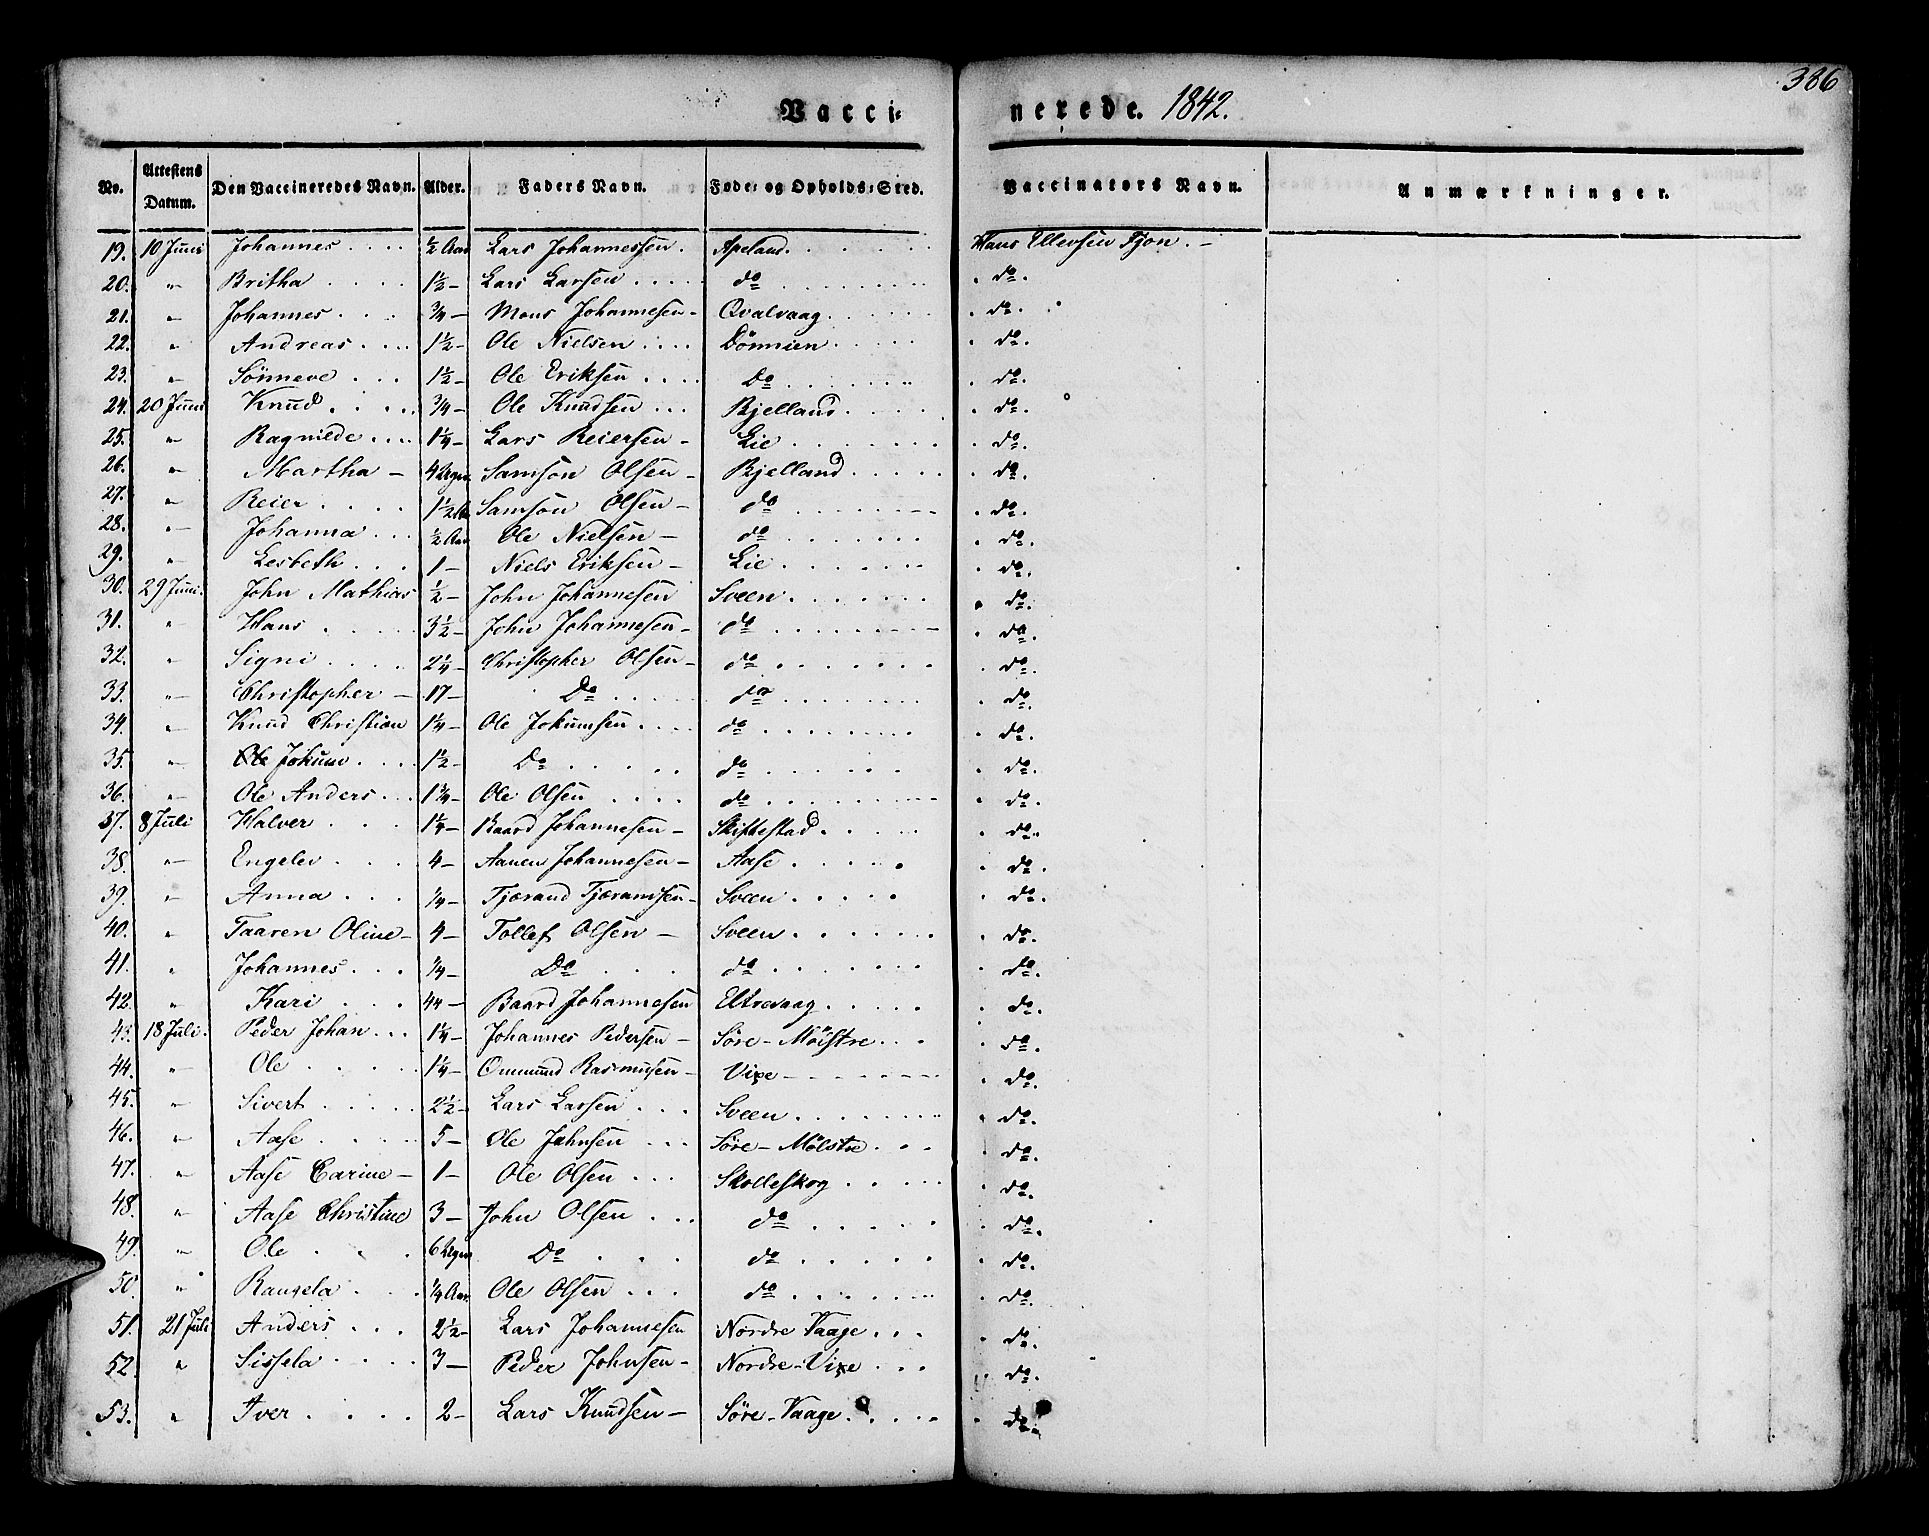 386
Vacci= nerede. 1842.
No. Attestens Datum. Den Vaccineredes Navn. Alder. Faders Navn. Føde= og Opholds=Sted. Vaccinators Navn. Anmærkninger.
19. 10 Juni Johannes .... ½ Aar Lars Johannessen. Apeland. Hans Ellevsen Tjon. –
20. " Britha .... 1½ – Lars Larsen .... do do.
21. " Johannes ... ¾ – Mons Johannesen – Qvalvaag. do.
22. " Andreas .... 1½ – Ole Nielsen .... Dömnien do.
23. " Sönneve ... 1½ – Ole Eriksen .... Do do.
24. 20 Juni Knud .... ¾ – Ole Knudsen ... Bjelland. do.
25. " Ragnilde .... 1¼ – Lars Reiersen – Lie do.
26. " Martha – 4 Ugur Samson Olsen – Bjelland do.
27. " Reier .... 1½ Aa Samson Olsen – do do.
28. " Johanna ... ½ Aar Ole Nielsen – do do.
29. " Lesbeth ... 1 – Niels Eriksen – Lie do.
30. 29 Juni. John Mathias ½ – John Johannesen Sveen do.
31. " Hans .... 3½ – John Johannesen – do do.
32. " Signi .... 2¼ – Christopher Olsen – do do.
33. " Christopher – 17 – Do ... do do.
34. " Knud Christian 1¼ – Ole Jokumsen .... do do.
35. " Ole Jokum .... 1½ – Do .... do do.
36. " Ole Anders ... 1¾ – Ole Olsen .... do do.
37. 8 Juli Halver ... 1¼ – Baard Johannesen – Skiftestad. do.
38. " Engelev ... 4 – Aanen Johannesen – Aase do.
39. " Anna ... ¼ – Tjærand Tjæransen – Sveen do.
40. " Taaren Oline – 4 – Tollef Olsen – Sveen do.
41. " Johannes ... ¼ – Do ... do do.
42. " Kari ... 44 – Baard Johannesen Eltravaag do.
43. 18 Juli. Peder Johan ... 1¼ – Johannes Pedersen – Söre – Mölstre ... do.
44. " Ole .... 1¼ – Ommund Rasmusen – Vixe do.
45. " Sivert .... 2½ – Lars Larsen ... Sveen do.
46. " Aase .... 5 – Ole Johnsen ... Söre – Mölstre ... do.
47. " Aase Carine – 1 – Ole Olsen ... Skolleskog do.
48. " Aase Christine 3 – John Olsen ... do do.
49. " Ole ... 6 Uger Do ... do do.
50. " Rangela ... ¼ Aar. Ole Olsen ... do do.
51. 21 Juli Anders ... 2½ – Lars Johannesen Nordre Vaage ... do.
52. " Sissela .... 3 – Peder Johnsen – Nordre – Vixe ... do.
53. " Iver .... 2 – Lars Knudsen – Söre – Vaage. do.